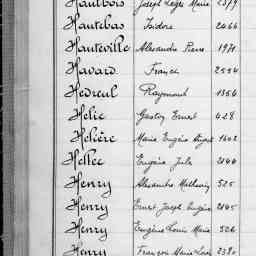 Hautbois Joseph Leger Marie 2379
Hautebas Isidore 2066
Hauteville Alexandre Pierre 1971
Havard Francis 2554
Hedreul Raymond 1354
Helie Gaston Ernest 428
Helière Marie Eugène 1602
Hellec Eugène Jules 2144
Henry Alexandre Mathurin 525
Henry Ernest Joseph Eugène 2145
Henry Eugène Louis Marie 526
Henry François Marie Louis